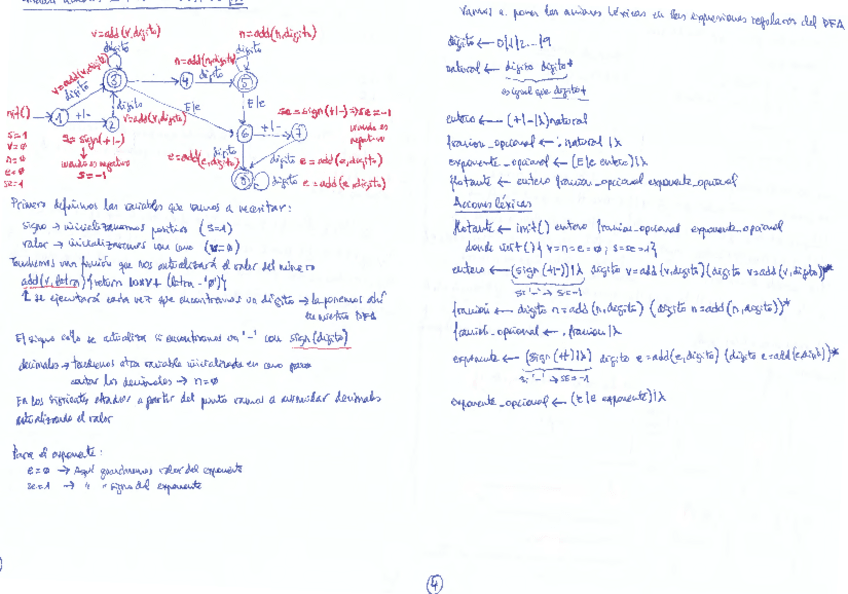 v=add(v,dígito)
n=add(n,dígito)
dígito
dígito
v=add(v,dígito)
n=add(n,dígito)
dígito
3
4
dígito
5
dígito
E/e
E/e
init()
1
+/-
2
v=add(v,dígito)
se=sign(+|-)→se=-1
cuando es negativo
s=1
v=0
n=0
e=0
se=1
s=sign(+|-)
cuando es negativo
s=-1
6
+/-
7
e=add(e,dígito)
dígito
dígito e=add(e,dígito)
8
dígito e=add(e,dígito)
Primero definimos las variables que vamos a necesitar:
signo → inicializaremos positivo (s=1)
valor → inicializaremos con cero (v=0)
Tendremos una función que nos actualizará el valor del número
add(v,letra){return 10*v+(letra-'0')}
se ejecutará cada vez que encontremos un dígito → la ponemos ahí
en nuestro DFA
El signo sólo se actualiza si encontramos un '-' con sign(dígito)
decimales → tendremos otra variable inicializada en cero para
contar los decimales → n=0
En los siguientes estados a partir del punto vamos a acumular decimales
actualizando el valor
Para el exponente:
e=0 → Aquí guardaremos valor del exponente
se=1 → " " signo del exponente
Vamos a poner las acciones léxicas en las expresiones regulares del DFA
dígito ← 0|1|2...|9
natural ← dígito dígito*
es igual que dígito+
entero ← (+|-|λ)natural
fraccion_opcional ← . natural |λ
exponente_opcional ← (E|e entero)|λ
flotante ← entero fraccion_opcional exponente_opcional
Acciones léxicas
flotante ← init() entero fraccion_opcional exponente_opcional
donde init(){v=n=e=0; s=se=1}
entero ← (sign(+|-)|λ) dígito v=add(v,dígito)(dígito v=add(v,dígito))*
si '-' → s=-1
fracción ← dígito n=add(n,dígito) (dígito n=add(n,dígito))*
fraccion_opcional ← . fraccion |λ
exponente ← (sign(+|-)|λ) dígito e=add(e,dígito) (dígito e=add(e,dígito))*
si '-' → se=-1
exponente_opcional ← (E|e exponente)|λ
4